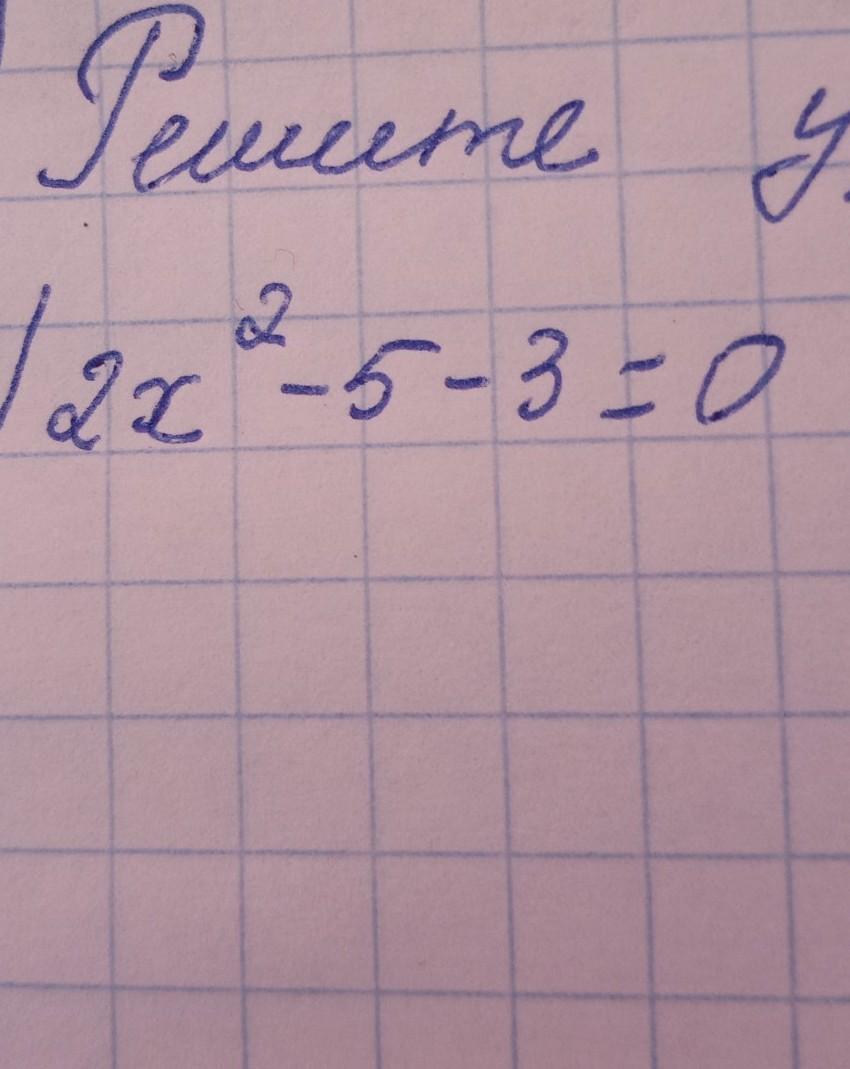 Решите у
2x² - 5 - 3 = 0